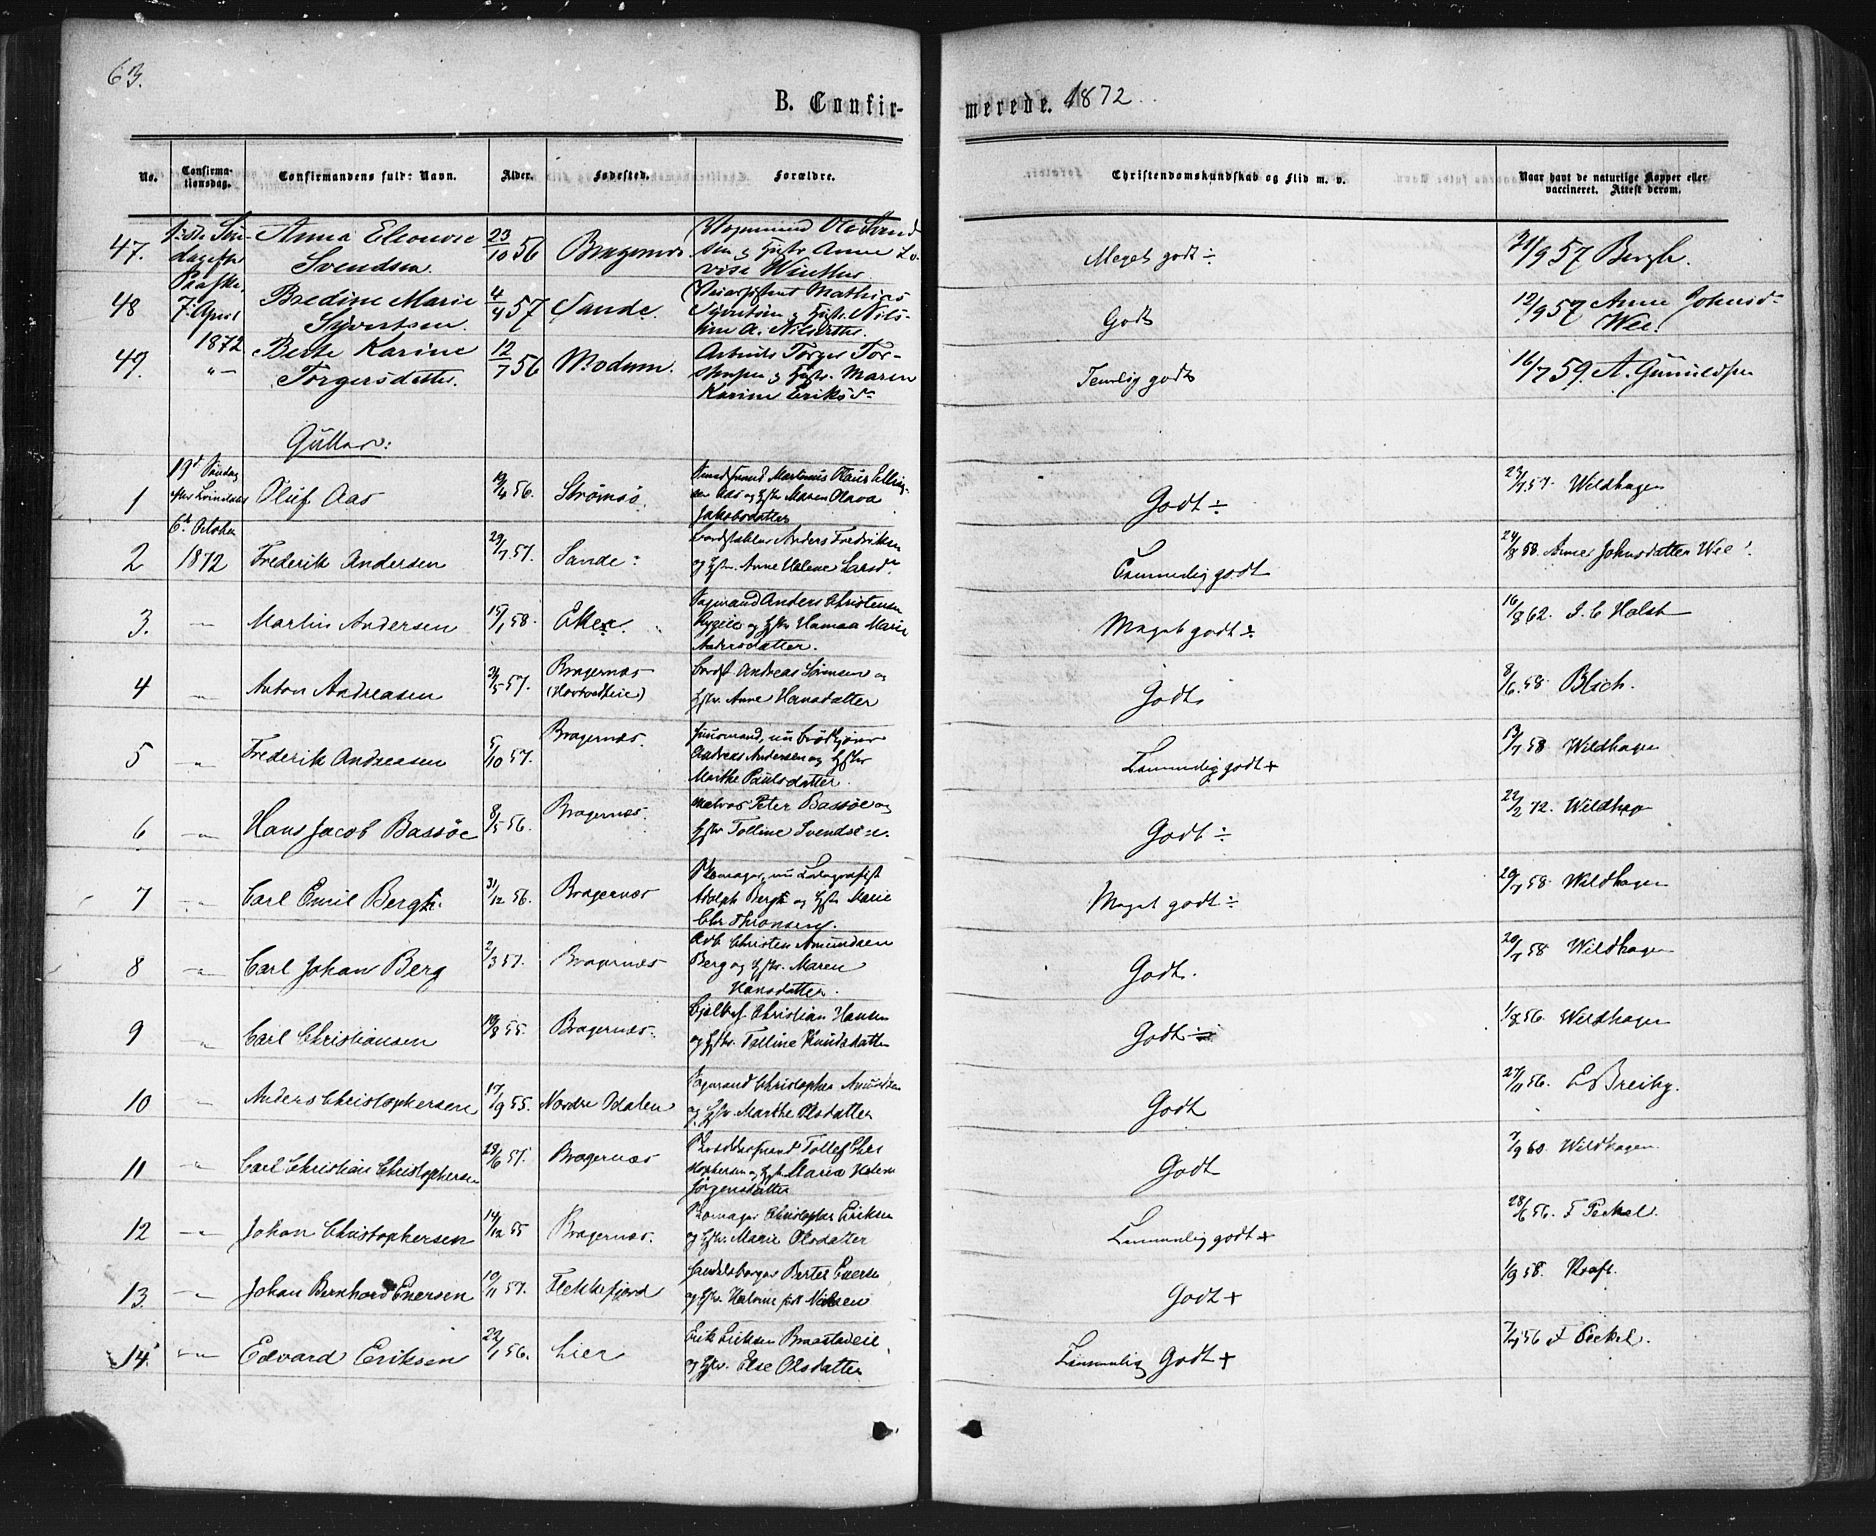 63.
B. Confir-
merede. 1872.
No.
Confirma-
tionsdag.
Confirmandens fulde Navn.
Alder.
Fødested.
Forældre.
Christendomskundskab og Flid m. v.
Naar havt de naturlige Kopper eller
vaccineret. Attest derom.
47.
Anna Eleonore
Svendsen.
23/10 56
Bragernæs
Vognmand Ole Svend
sen og Hustr. Anne Lo-
vise Winther.
Meget godt ÷
31/9 57 Bergh.
48
7. April
1872
Boedine Marie
Syvertsen.
4/4 57
Sande.
Mathias
Syvertsen og Hustr. Nils-
Godt
12/9 57 Anne Johnsd-
Wee.
49.
"
Berte Karine
Torgersdatter.
12/7 56
Modum.
Arbeids Torger Tor-
og Hustr. Maren
Karine Eriksd-
Temlig godt
16/7 59. A. Gunuldsen
Gutter:
1
19d Søndag
efter Trinitatis
6te October
1872
Oluf Aas
19/4 56.
Strømsø
Martinus Olaus Elling-
sen Aas og Hstr Maren Olava
Jakobsdatter
Godt ÷
23/7 57. Wildhagen
2
Frederik Andersen
29/7 57.
Sande
Bordstabler Anders Fredriksen
og Hstr. Anne Helene Larsd.
Temmelig godt
24/8 58. Anne Johnsdatter Wee.
3.
"
Martin Andersen
15/1 58.
Eker.
Sagmand Anders Christensen
og Hstr Hanna Marie
Andersdatter.
Meget godt ÷
16/8 62. J. C Holst
4
"
Anton Andreasen
31/5 57.
Bragernæs
Bordst Andreas Sørensen og
Hstr. Anne Hansdatter
Godt
8/6. 58. Blich.
5
"
Frederik Andreasen
5/10 57.
Bragernæs.
Huusmand, nu
Andreas Andersen og Hstr
Marthe Paulsdatter.
Temmelig godt +
13/7 58 Wildhagen
6
"
Hans Jacob Bassøe
8/5 56.
Bragernæs.
Matros Peter Bassøe og
Hstr Tolline Svendsen.
Godt ÷
22/2 72. Wildhagen
7
"
Carl Emil Bergh.
31/12 56.
Bragernæs
Skomager, nu
Adolph Bergh og Hstr Marie
Chr Thronsen.
Meget godt ÷
20/7 58. Wildhagen
8
"
Carl Johan Berg
2/3 57.
Bragernæs
Arb Christen Amundsen
Berg og Hstr. Maren
Hansdatter.
Godt.
20/7 58 Wildhagen
9
"
Carl Christiansen
19/8 55.
Bragernæs.
Christian Hansen
og Hstr. Tolline Knudsdatter
Godt ÷
1/8 56. Wildhagen
10
"
Anders Christophersen
17/9 55.
Nordre Odalen
Sagmand Christopher Amundsen
og Hstr. Marthe Olsdatter
Godt
27/11 56. E Breiby.
11
"
Carl Christian Christophersen
23/6 57.
Bragernæs
Tollef Chris
stophersen og Hstr Maria Helene
Jørgensdatter
Godt
7/9 60. Wildhagen
12
"
Johan Christophersen
14/12 55
Bragernæs.
Skomager Christopher Eriksen
og Hstr. Marie Olsdatter
Temmelig godt +
28/6 56. F Peckel.
13.
"
Johan Bernhard Enersen
10/11 57.
Flekkefjord
og Hstr.
Godt +
1/9 58. Kraft.
14.
"
Edvard Eriksen
22/1 56.
Lier
Erik Eriksen
og Hstr. Else Olsdatter
Temmelig Godt +
56 F Peckel.